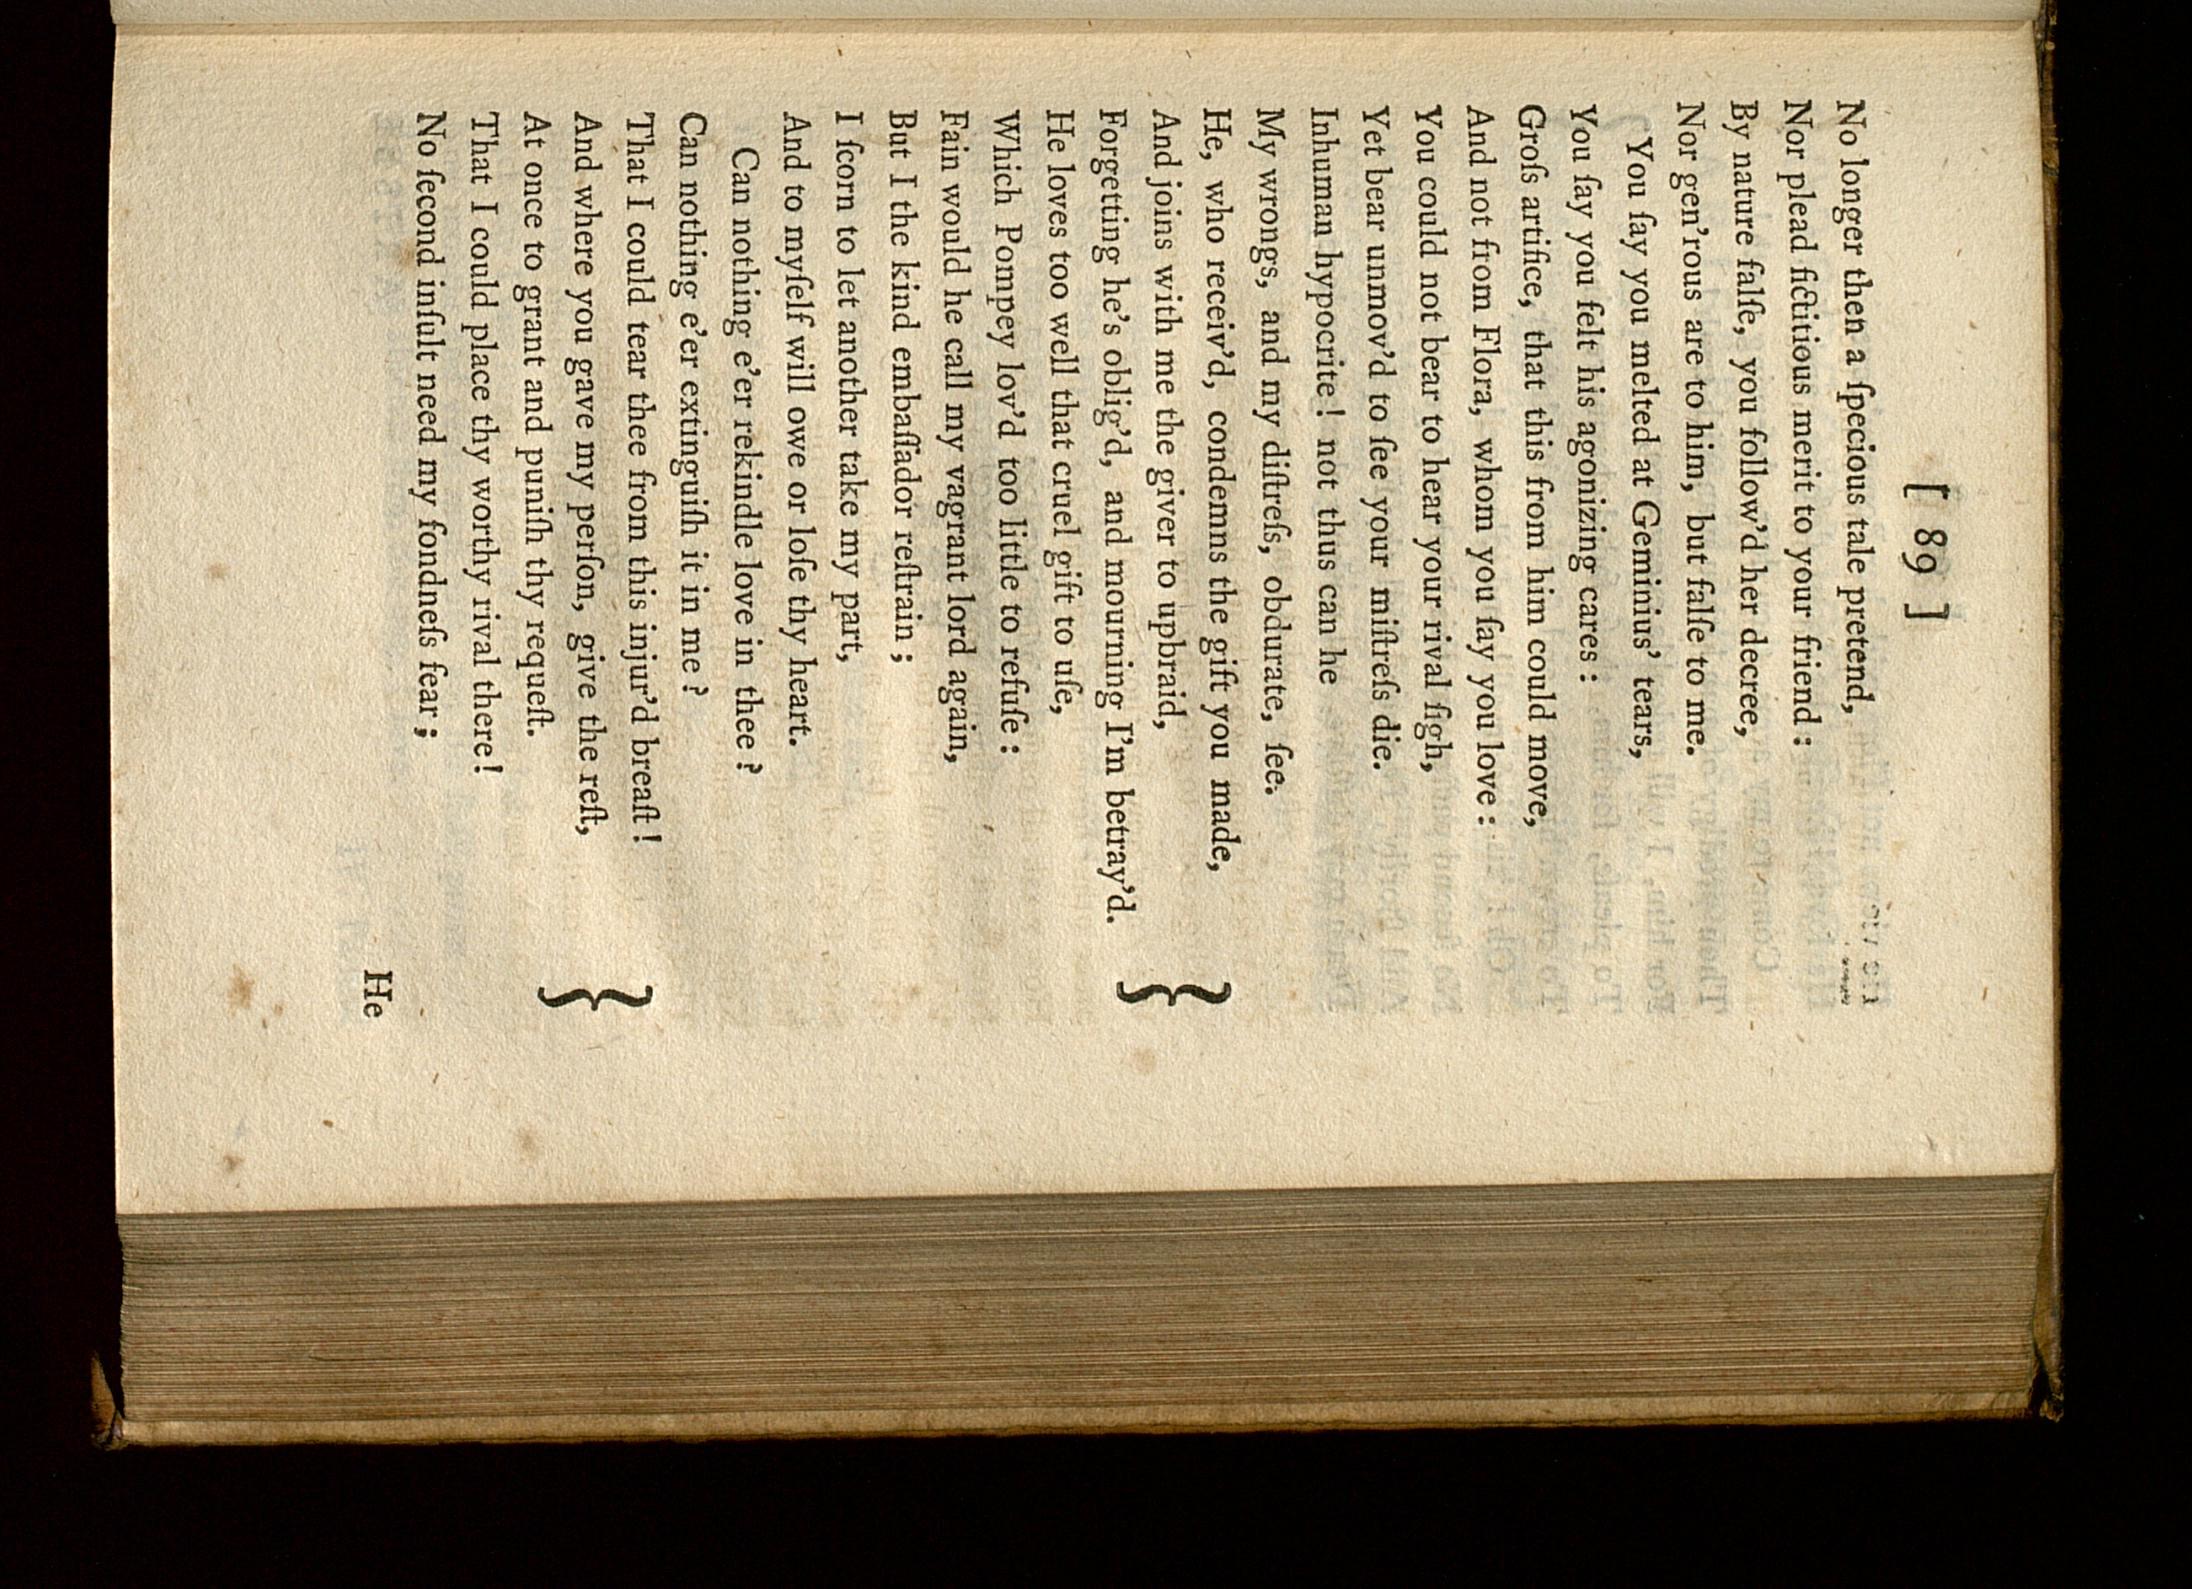 [ 89 ]
No longer then a ſpecious tale pretend,
Nor plead fictitious merit to your friend :
By nature falſe, you follow'd her decree,
Nor gen'rous are to him, but falſe to me.
You ſay you melted at Geminius' tears,
You ſay you felt his agonizing cares :
Groſs artifice, that this from him could move,
And not from Flora, whom you ſay you love :
You could not bear to hear your rival ſigh,
Yet bear unmov'd to ſee your miſtreſs die.
Inhuman hypocrite! not thus can he
My wrongs, and my diſtreſs, obdurate, ſee.
He, who receiv'd, condemns the gift you made,
And joins with me the giver to upbraid,
Forgetting he's oblig'd, and mourning I'm betray'd. }
He loves too well that cruel gift to uſe,
Which Pompey lov'd too little to refuſe :
Fain would he call my vagrant lord again,
But I the kind embaſſador reſtrain ;
I ſcorn to let another take my part,
And to myſelf will owe or loſe thy heart.
Can nothing e'er rekindle love in thee ?
Can nothing e'er extinguiſh it in me ?
That I could tear thee from this injur'd breaſt !
And where you gave my perſon, give the reſt,
At once to grant and puniſh thy requeſt. }
That I could place thy worthy rival there!
No ſecond inſult need my fondneſs fear ;
He